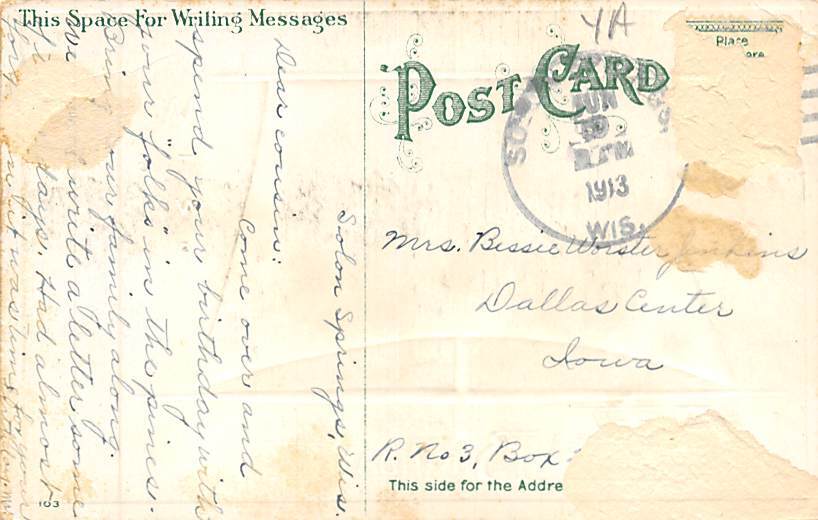 This Space For Writing Messages
Solon Springs, Wis.
Dear cousin:
Come over and
spend your birthday with
your "folks" in the pines.
Bring your family along.
write a letter some
days. Had almost
it was time for your
103
YA
POST CARD
Place
ore
SO
JUN
1913
WIS.
Mrs. Bessie Worster Jenkins
Dallas Center
Iowa
R. No 3, Box
This side for the Addre